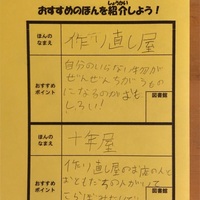 おすすめのほんを紹介しよう！
しょうかい
ほんの
なまえ
作り直し屋
おすすめ
ポイント
自分のいらない物が
ぜんぜんちがうもの
になるのがおも
しろい！
図書館
ほんの
なまえ
十年屋
おすすめ
ポイント
作り直し屋のお店の人と
おともだちの人がいて
図書館